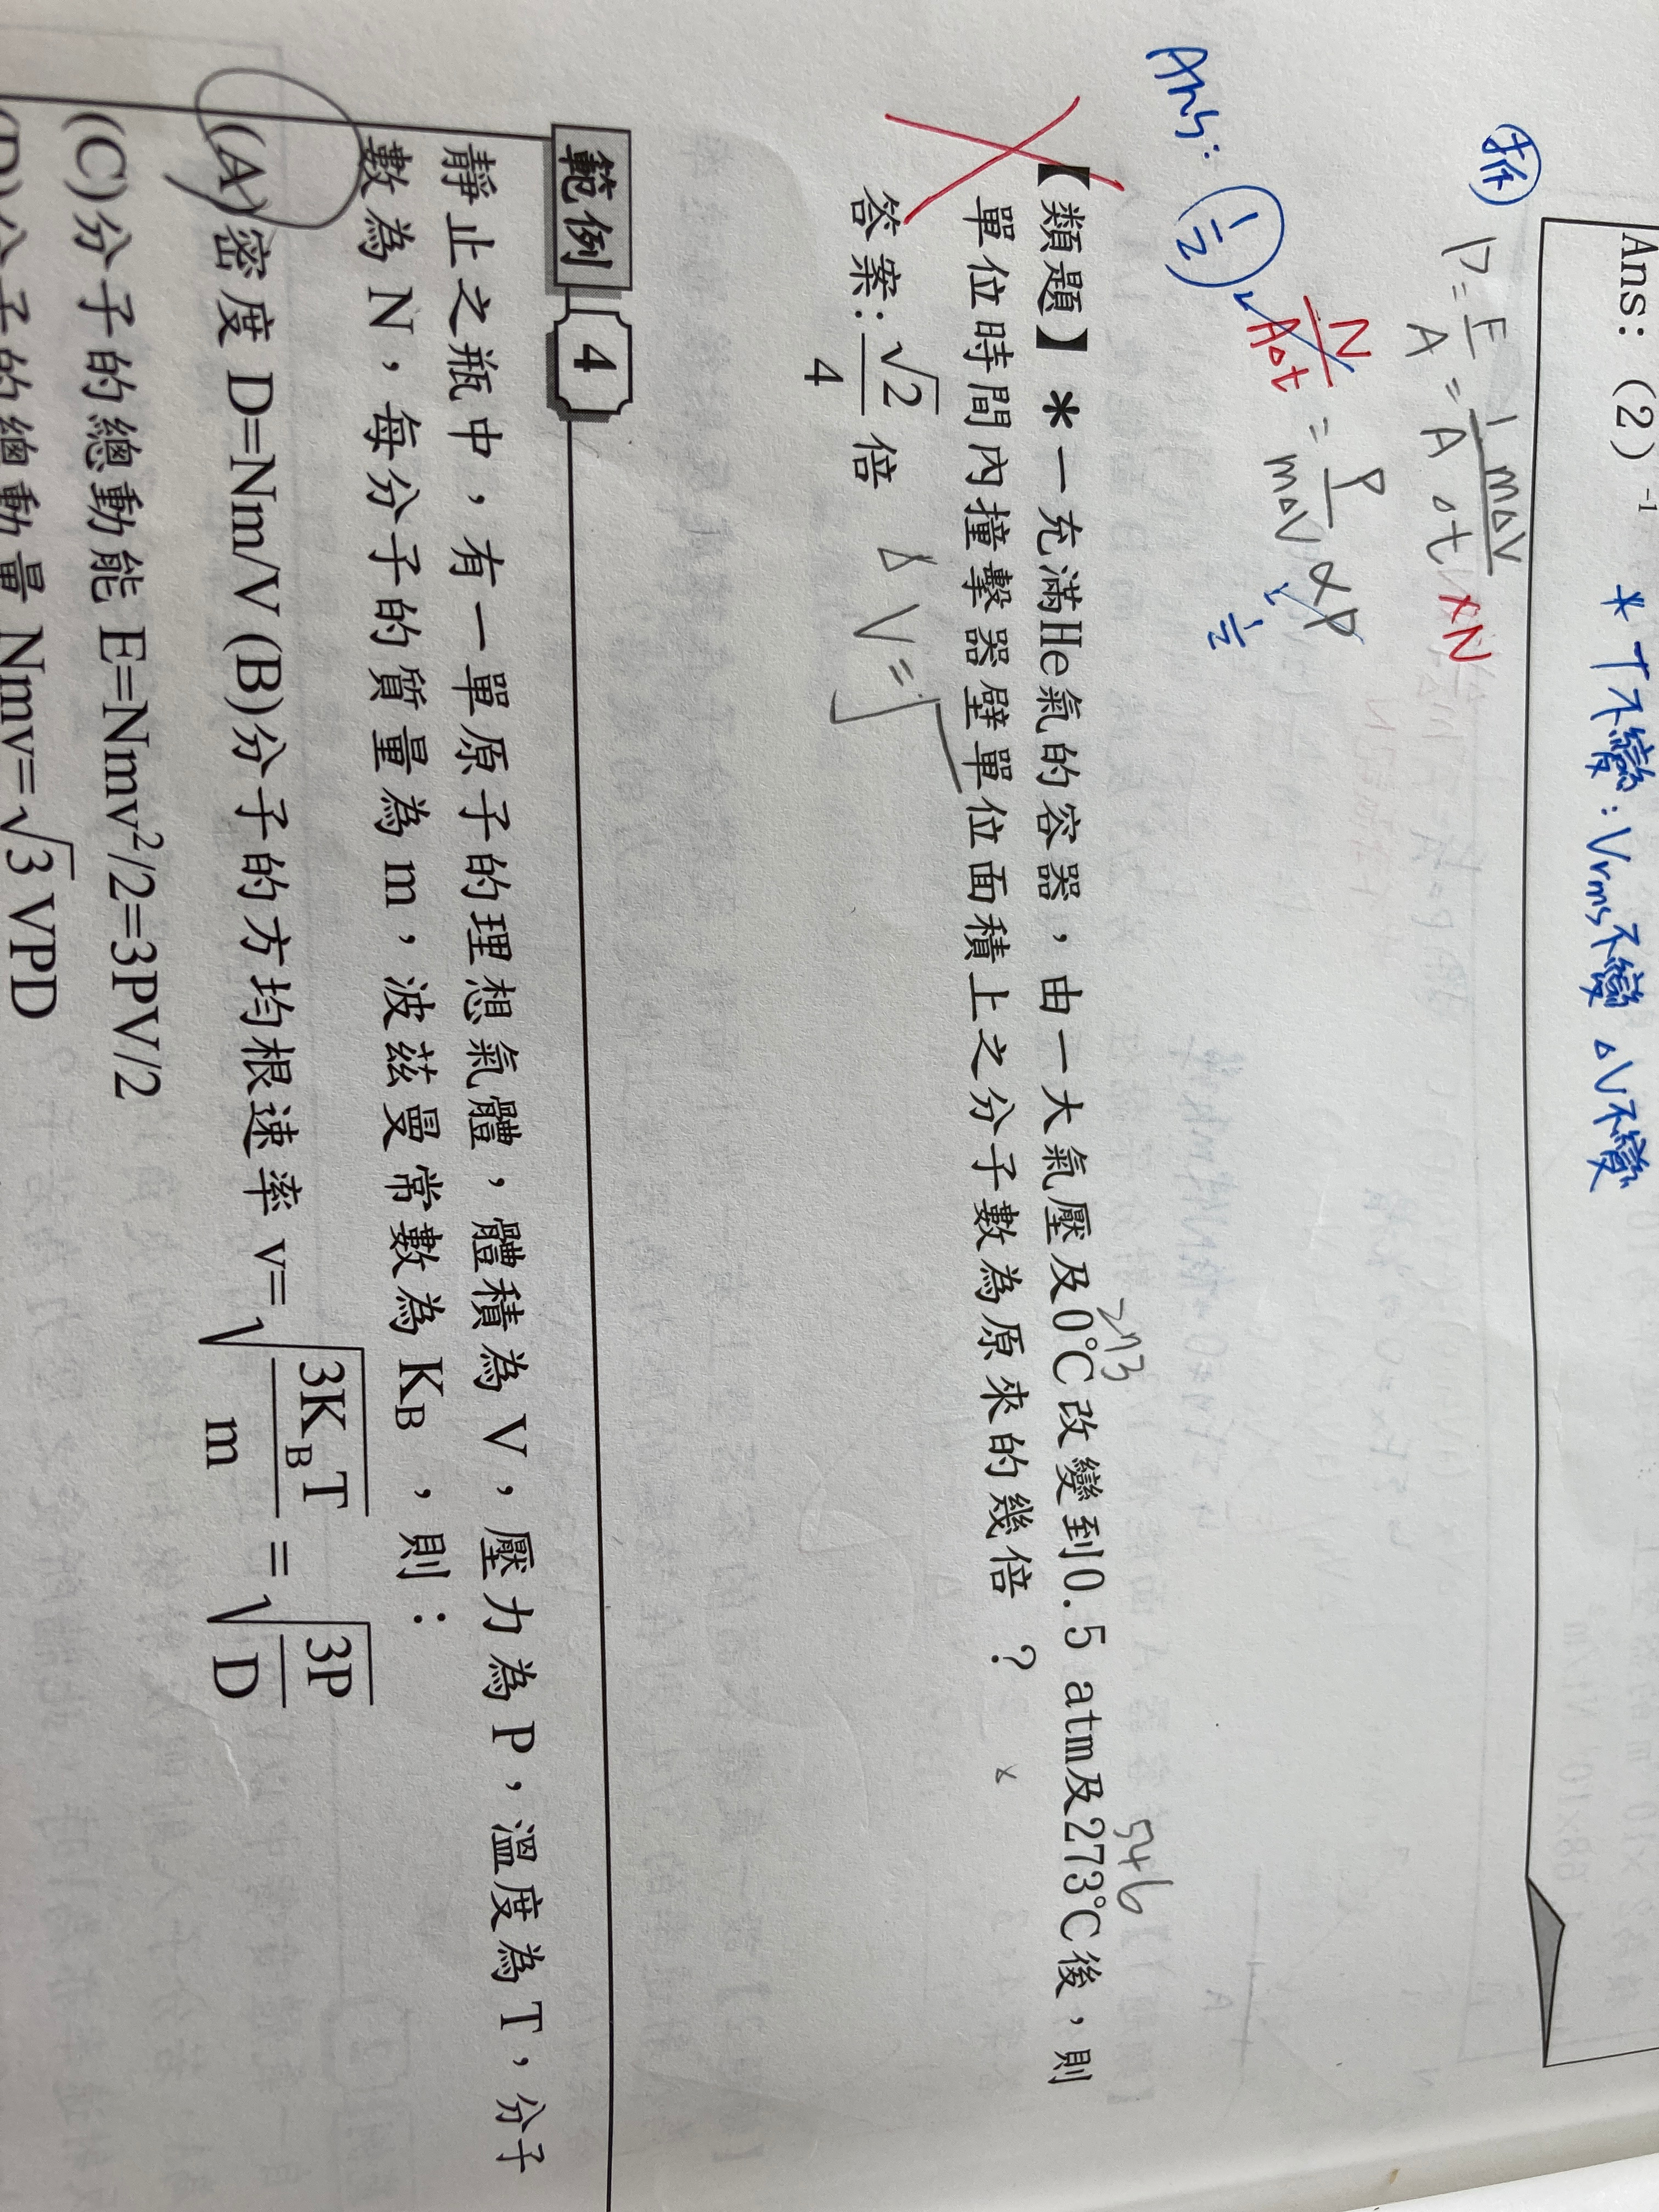 Ans: (2)⁻¹
* T不變:Vrms不變 ΔV不變
析 P=F/A=1/A mΔV/Δt ×N
N/AΔt = P/mΔV ∝P
1/2
Ans: 1/2
【類題】*一充滿He氣的容器,由一大氣壓及0℃改變到0.5 atm及273℃後,則
273
546
單位時間內撞擊器壁單位面積上之分子數為原來的幾倍 ?
答案:√2/4倍
V=√
範例 4
靜止之瓶中,有一單原子的理想氣體,體積為V,壓力為P,溫度為T,分子
數為N,每分子的質量為m,波茲曼常數為K_B,則:
(A)密度D=Nm/V (B)分子的方均根速率v=√(3K_BT/m)=√(3P/D)
(C)分子的總動能E=Nmv²/2=3PV/2
(D)分子的總動量Nmv=√3VPD